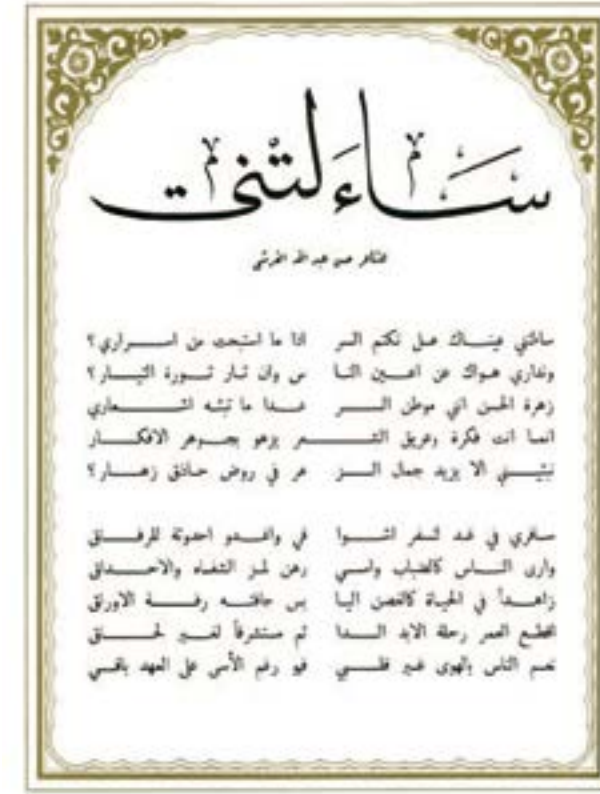 ساءلتني
للشاعر حسن عبد الله القرشي
ساءلتني عينـاك هـل نكتم السـر اذا ما استبحت من اسـراري ؟
ونداري هـواك عن اعـين النـا س وان ثـار ثـورة التيـار ؟
زهرة الحسن اني موطن السـر غـدا ما تبثه اشـعاري
انمـا انت فكرة وعريق الشـعر يزهو بجـوهر الافكـار
نبئيـني الا يزيد جمال الـز هر في روض حـاذق زهـار ؟
سـافري في غـد لسفر اشـوا في واغـدو احدوثة للرفـاق
وارى النـاس كالضباب وامـسي رهن لمز الشفـاه والاحـداق
زاهـداً في الحيـاة كالغصن اليا بس جافتـه رفـة الاوراق
اقطـع العمر رحلة الابد الـدا ثم مستشرفاً لغـير لحـاق
نعـم الناس بالهوى غـير قلـبي فهو رغم الأسى على العهد باقـي